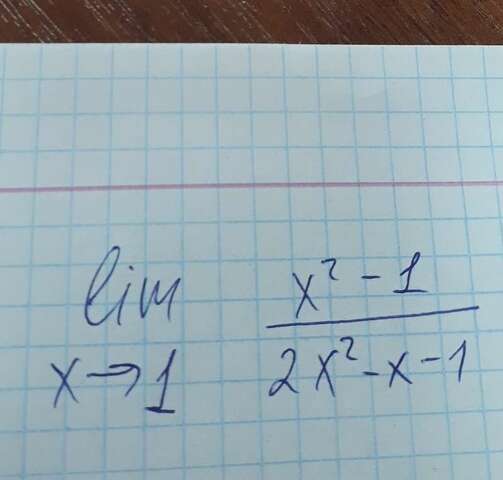 lim x² - 1
x→1 2x² - x - 1